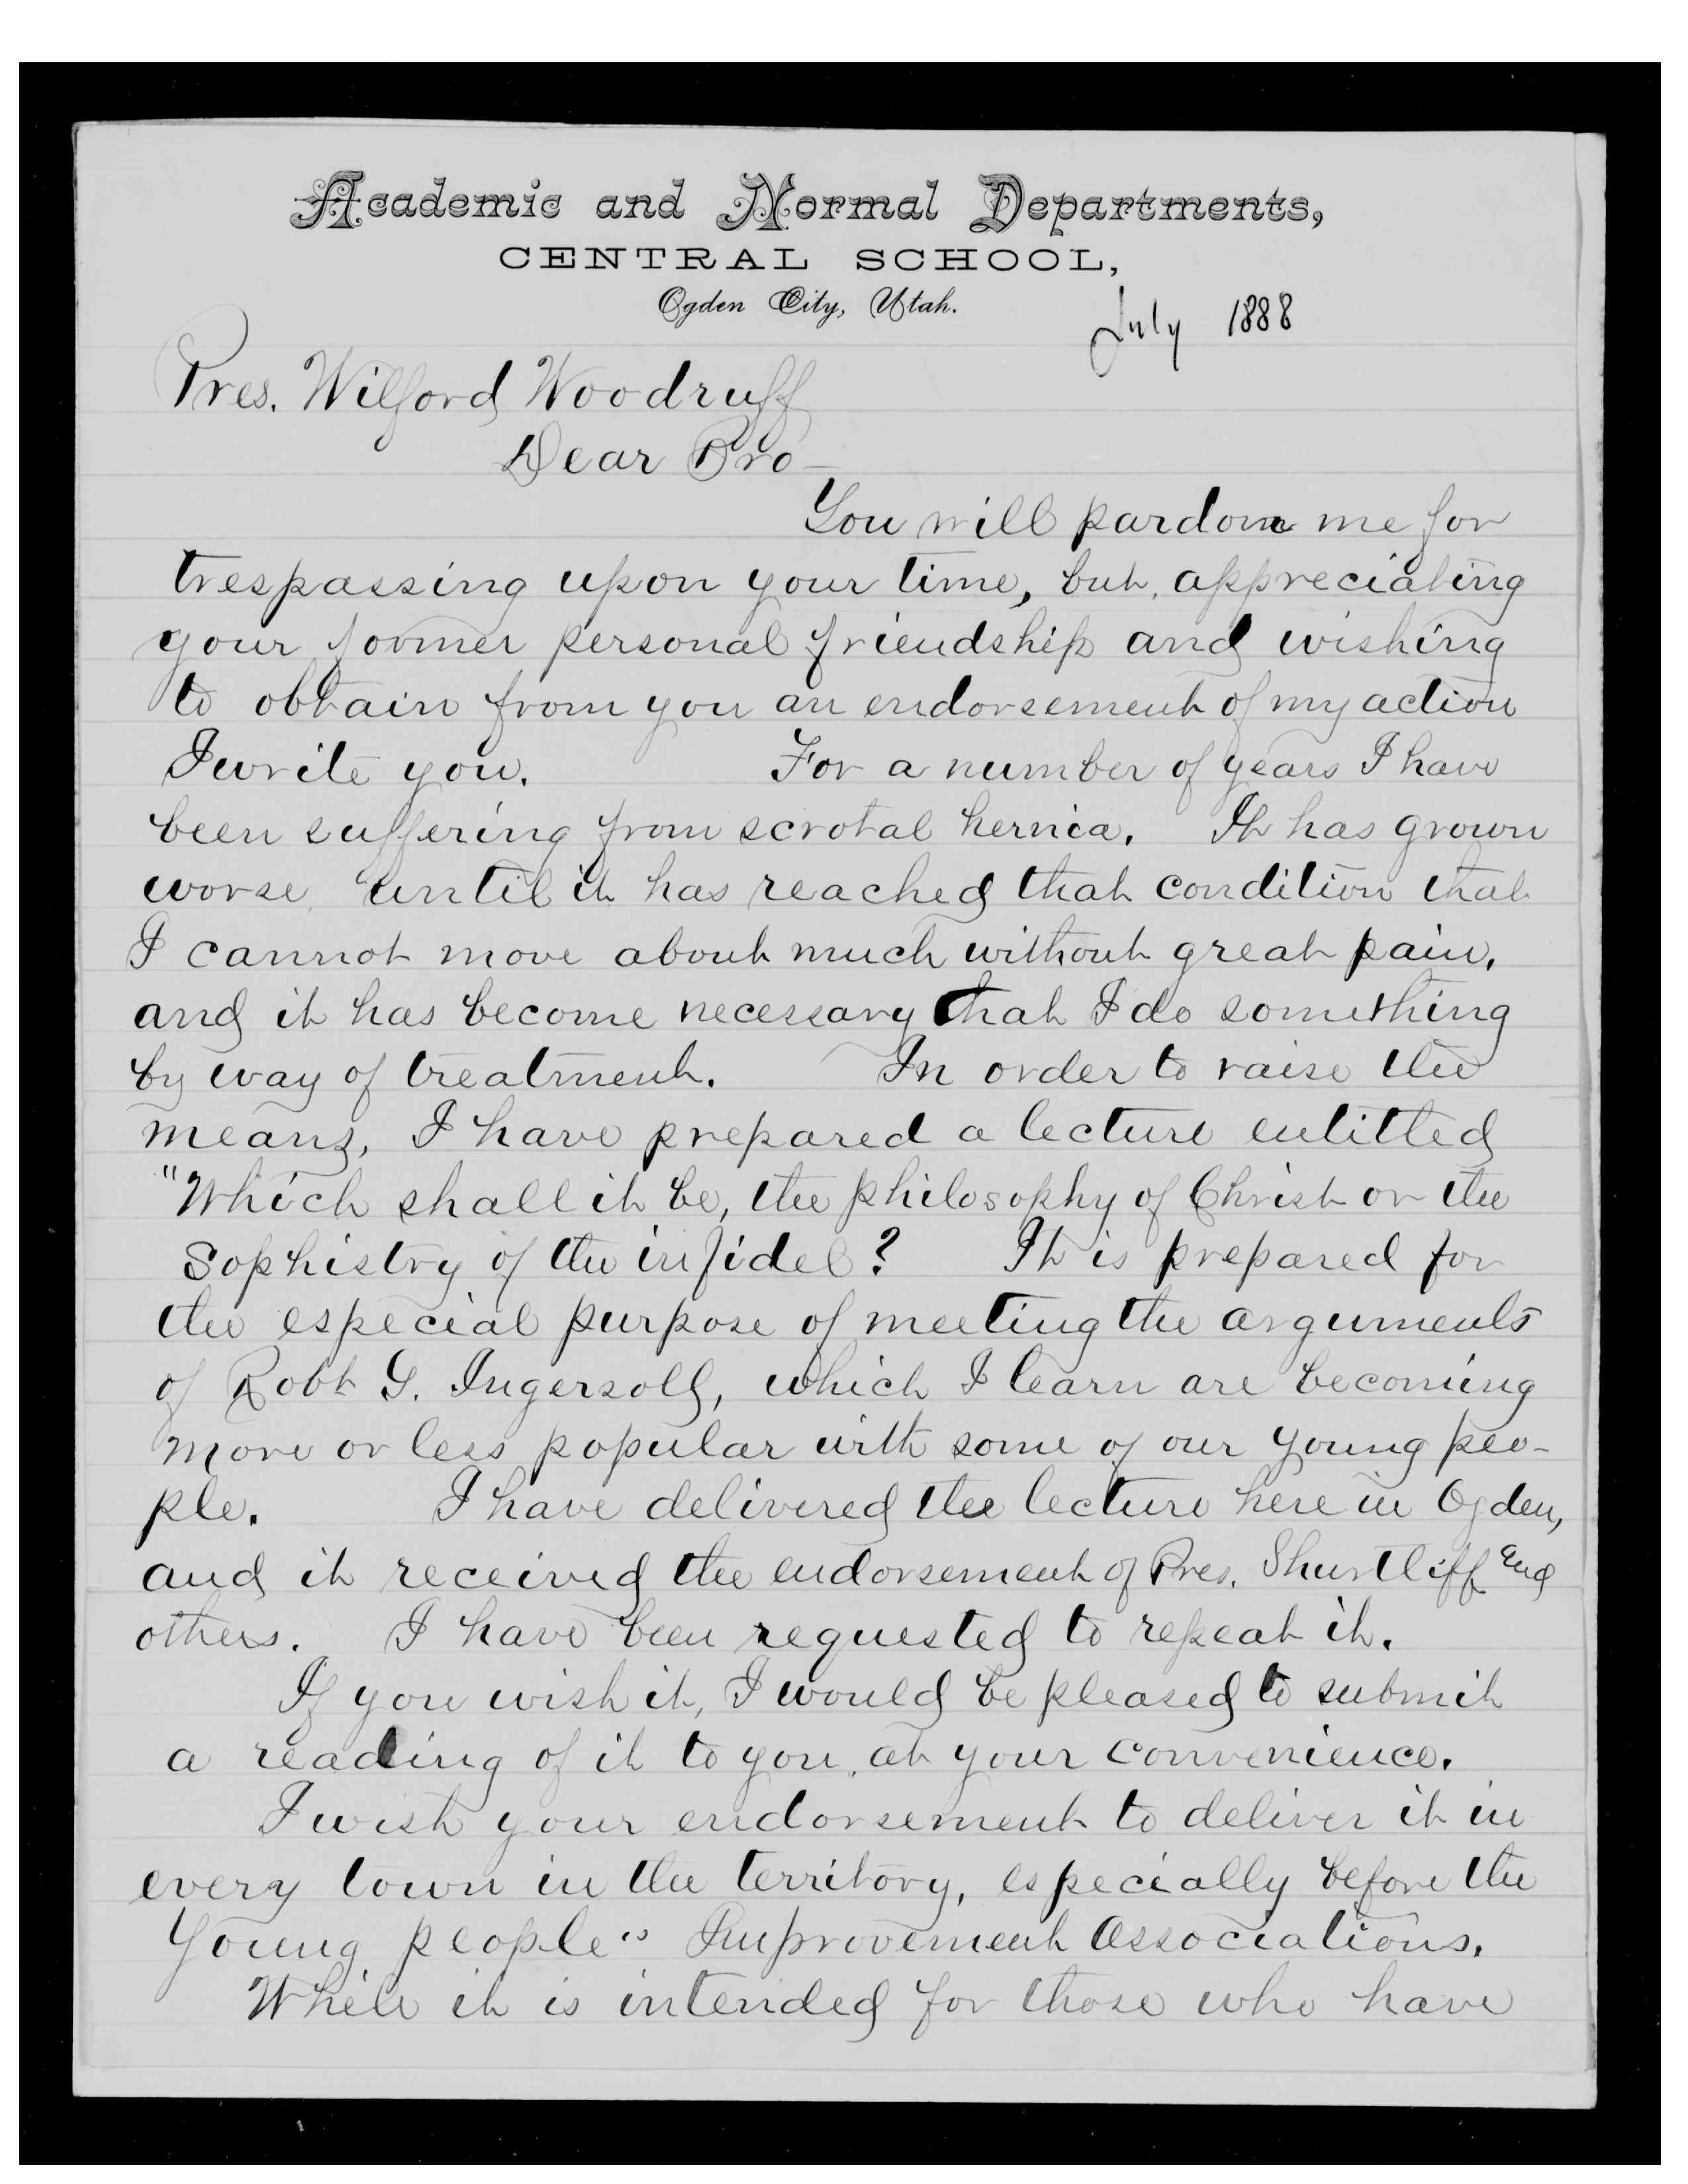 Academic and Normal Departments,
CENTRAL SCHOOL,
Ogden City, Utah.
July 1888
Pres. Wilford Woodruff
Dear Bro—
You will pardon me for
trespassing upon your time, but, appreciating
your former personal friendship and wishing
to obtain from you an endorsement of my action
I write you. For a number of years I have
been suffering from scrotal hernia. It has grown
worse until it has reached that condition that
I cannot move about much without great pain,
and it has become necessary that I do something
by way of treatment. In order to raise the
means, I have prepared a lecture entitled
"Which shall it be, the philosophy of Christ or the
Sophistry of the infidel? It is prepared for
the especial purpose of meeting the arguments
of Robt G. Ingersoll, which I learn are becoming
more or less popular with some of our young peo-
ple. I have delivered the lecture here in Ogden,
and it received the endorsement of Pres. Shurtliff and
others. I have been requested to repeat it.
If you wish it, I would be pleased to submit
a reading of it to you, at your convenience.
I wish your endorsement to deliver it in
every town in the territory, especially before the
Young people" Improvement Associations.
While it is intended for those who have